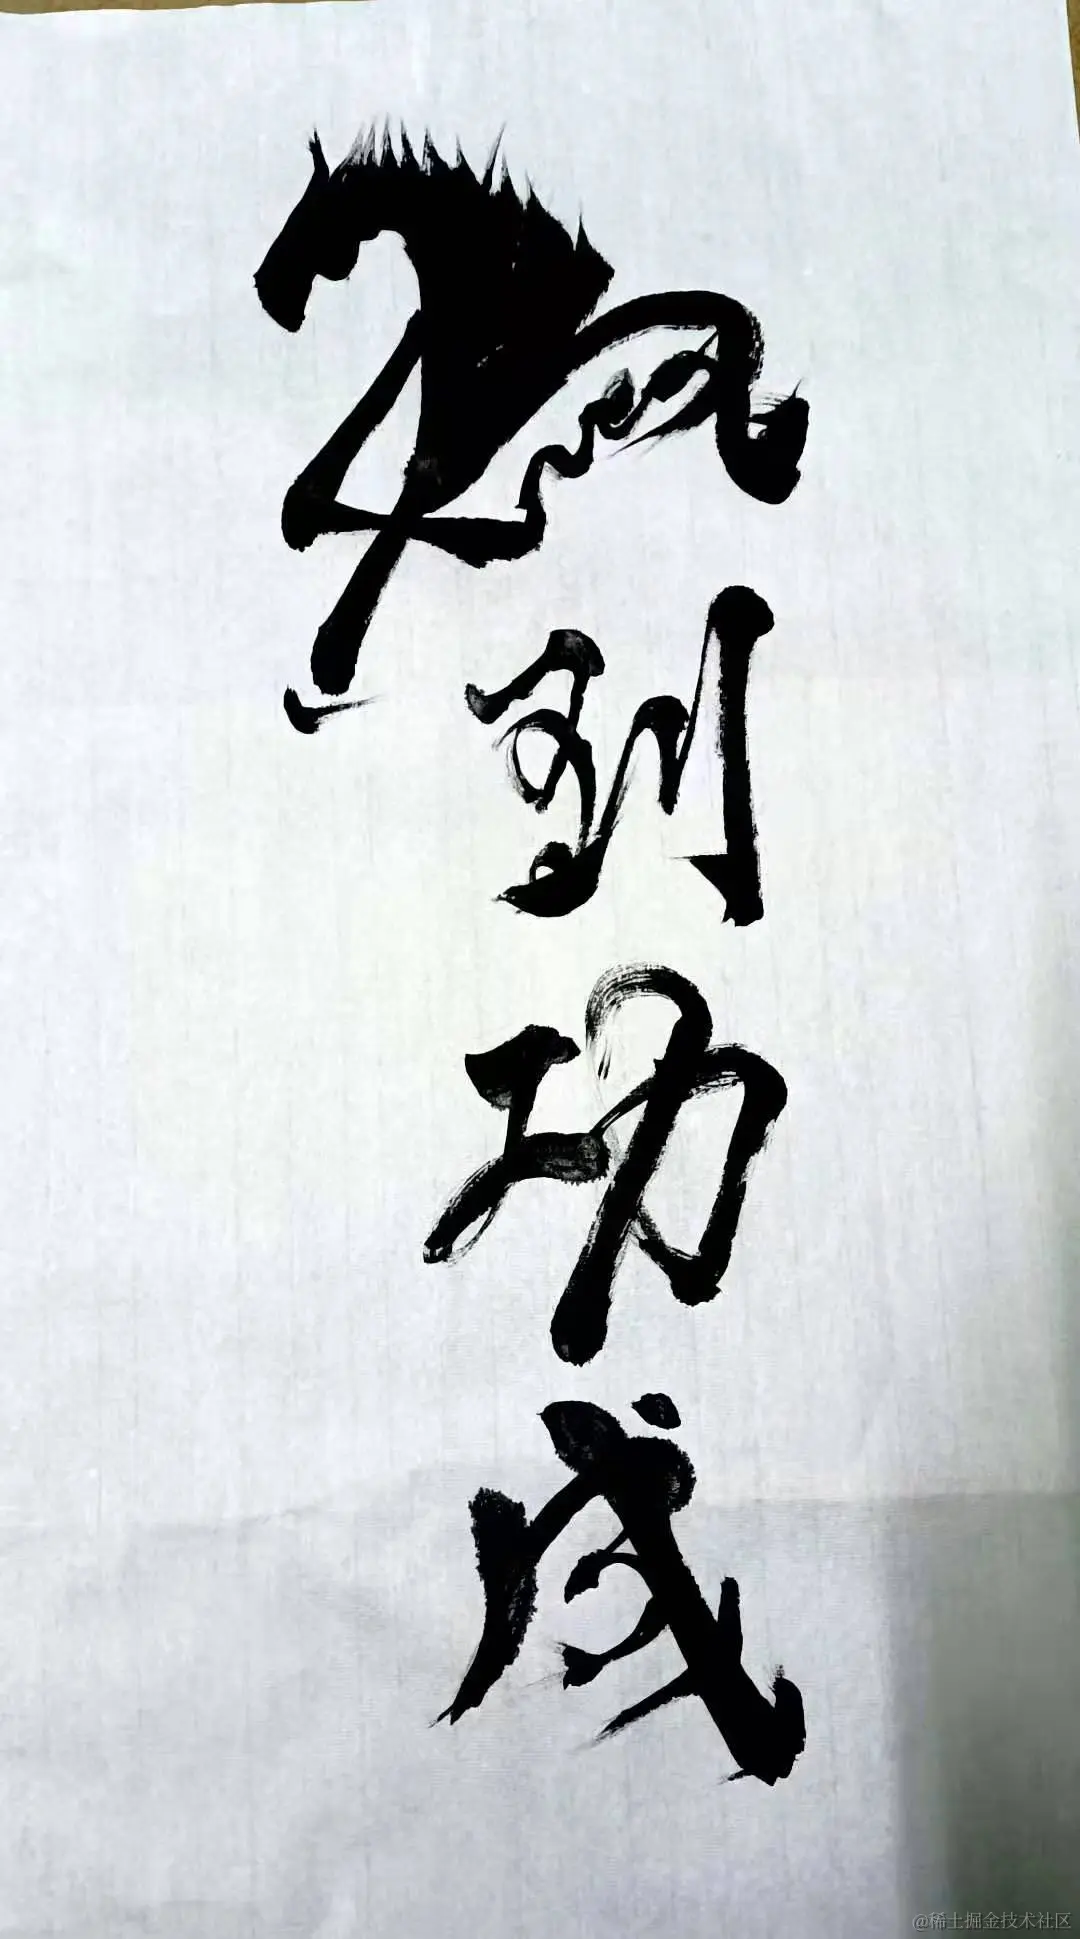 马到功成
@稀土掘金技术社区